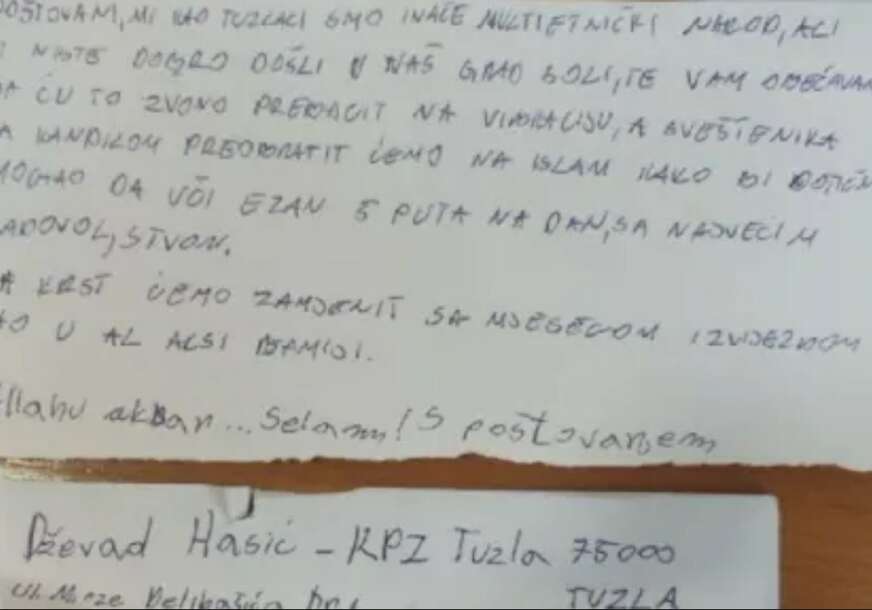 POŠTOVANI, MI KAO TUZLACI SMO INAČE MULTIETNIČKI NAROD, ALI
NISTE DOBRO DOŠLI U NAŠ GRAD SOLI, TE VAM OBEĆAVAM
DA ĆU TO ZVONO PREBACIT NA VIBRACIJU, A SVEŠTENIKA
KANDILOM PREOBRATIT ĆEMO NA ISLAM KAKO BI
MOGAO DA UČI EZAN 5 PUTA NA DAN, SA NAJVEĆIM
ZADOVOLJSTVOM.
A KRST ĆEMO ZAMJENIT SA MJESECOM I ZVIJEZDOM
KAO U AL AKSI DŽAMIJI.
Allahu akbar... Selam! S poštovanjem
Dževad Hasić - KPZ Tuzla 75000
TUZLA